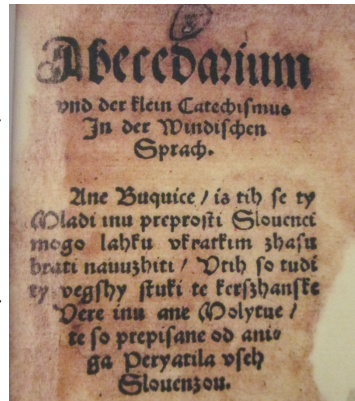 Abecedarium
vnd der klein Catechismus
In der Windischen
Sprach.
Ane Buquice / is tih se ty
Mladi inu preprosti Slouenci
mogo lahku vkratkim zhasu
brati nauuzhiti / Vtih so tudi
ty vegshy stuki te kerszhanske
Vere inu ane Molytue /
te so prepisane od anic
ga Peryatila vseh
Slouenzou.